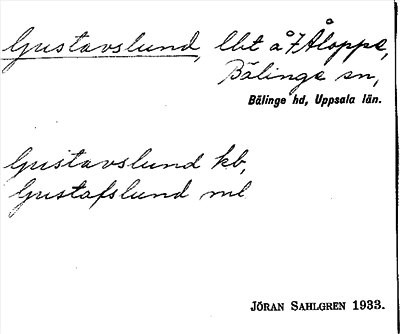 Gustavslund, lht å 7 Åloppe,
Bälinge sn,
Bälinge hd, Uppsala län.
Gustavslund kb,
Gustafslund ml
JÖRAN SAHLGREN 1933.